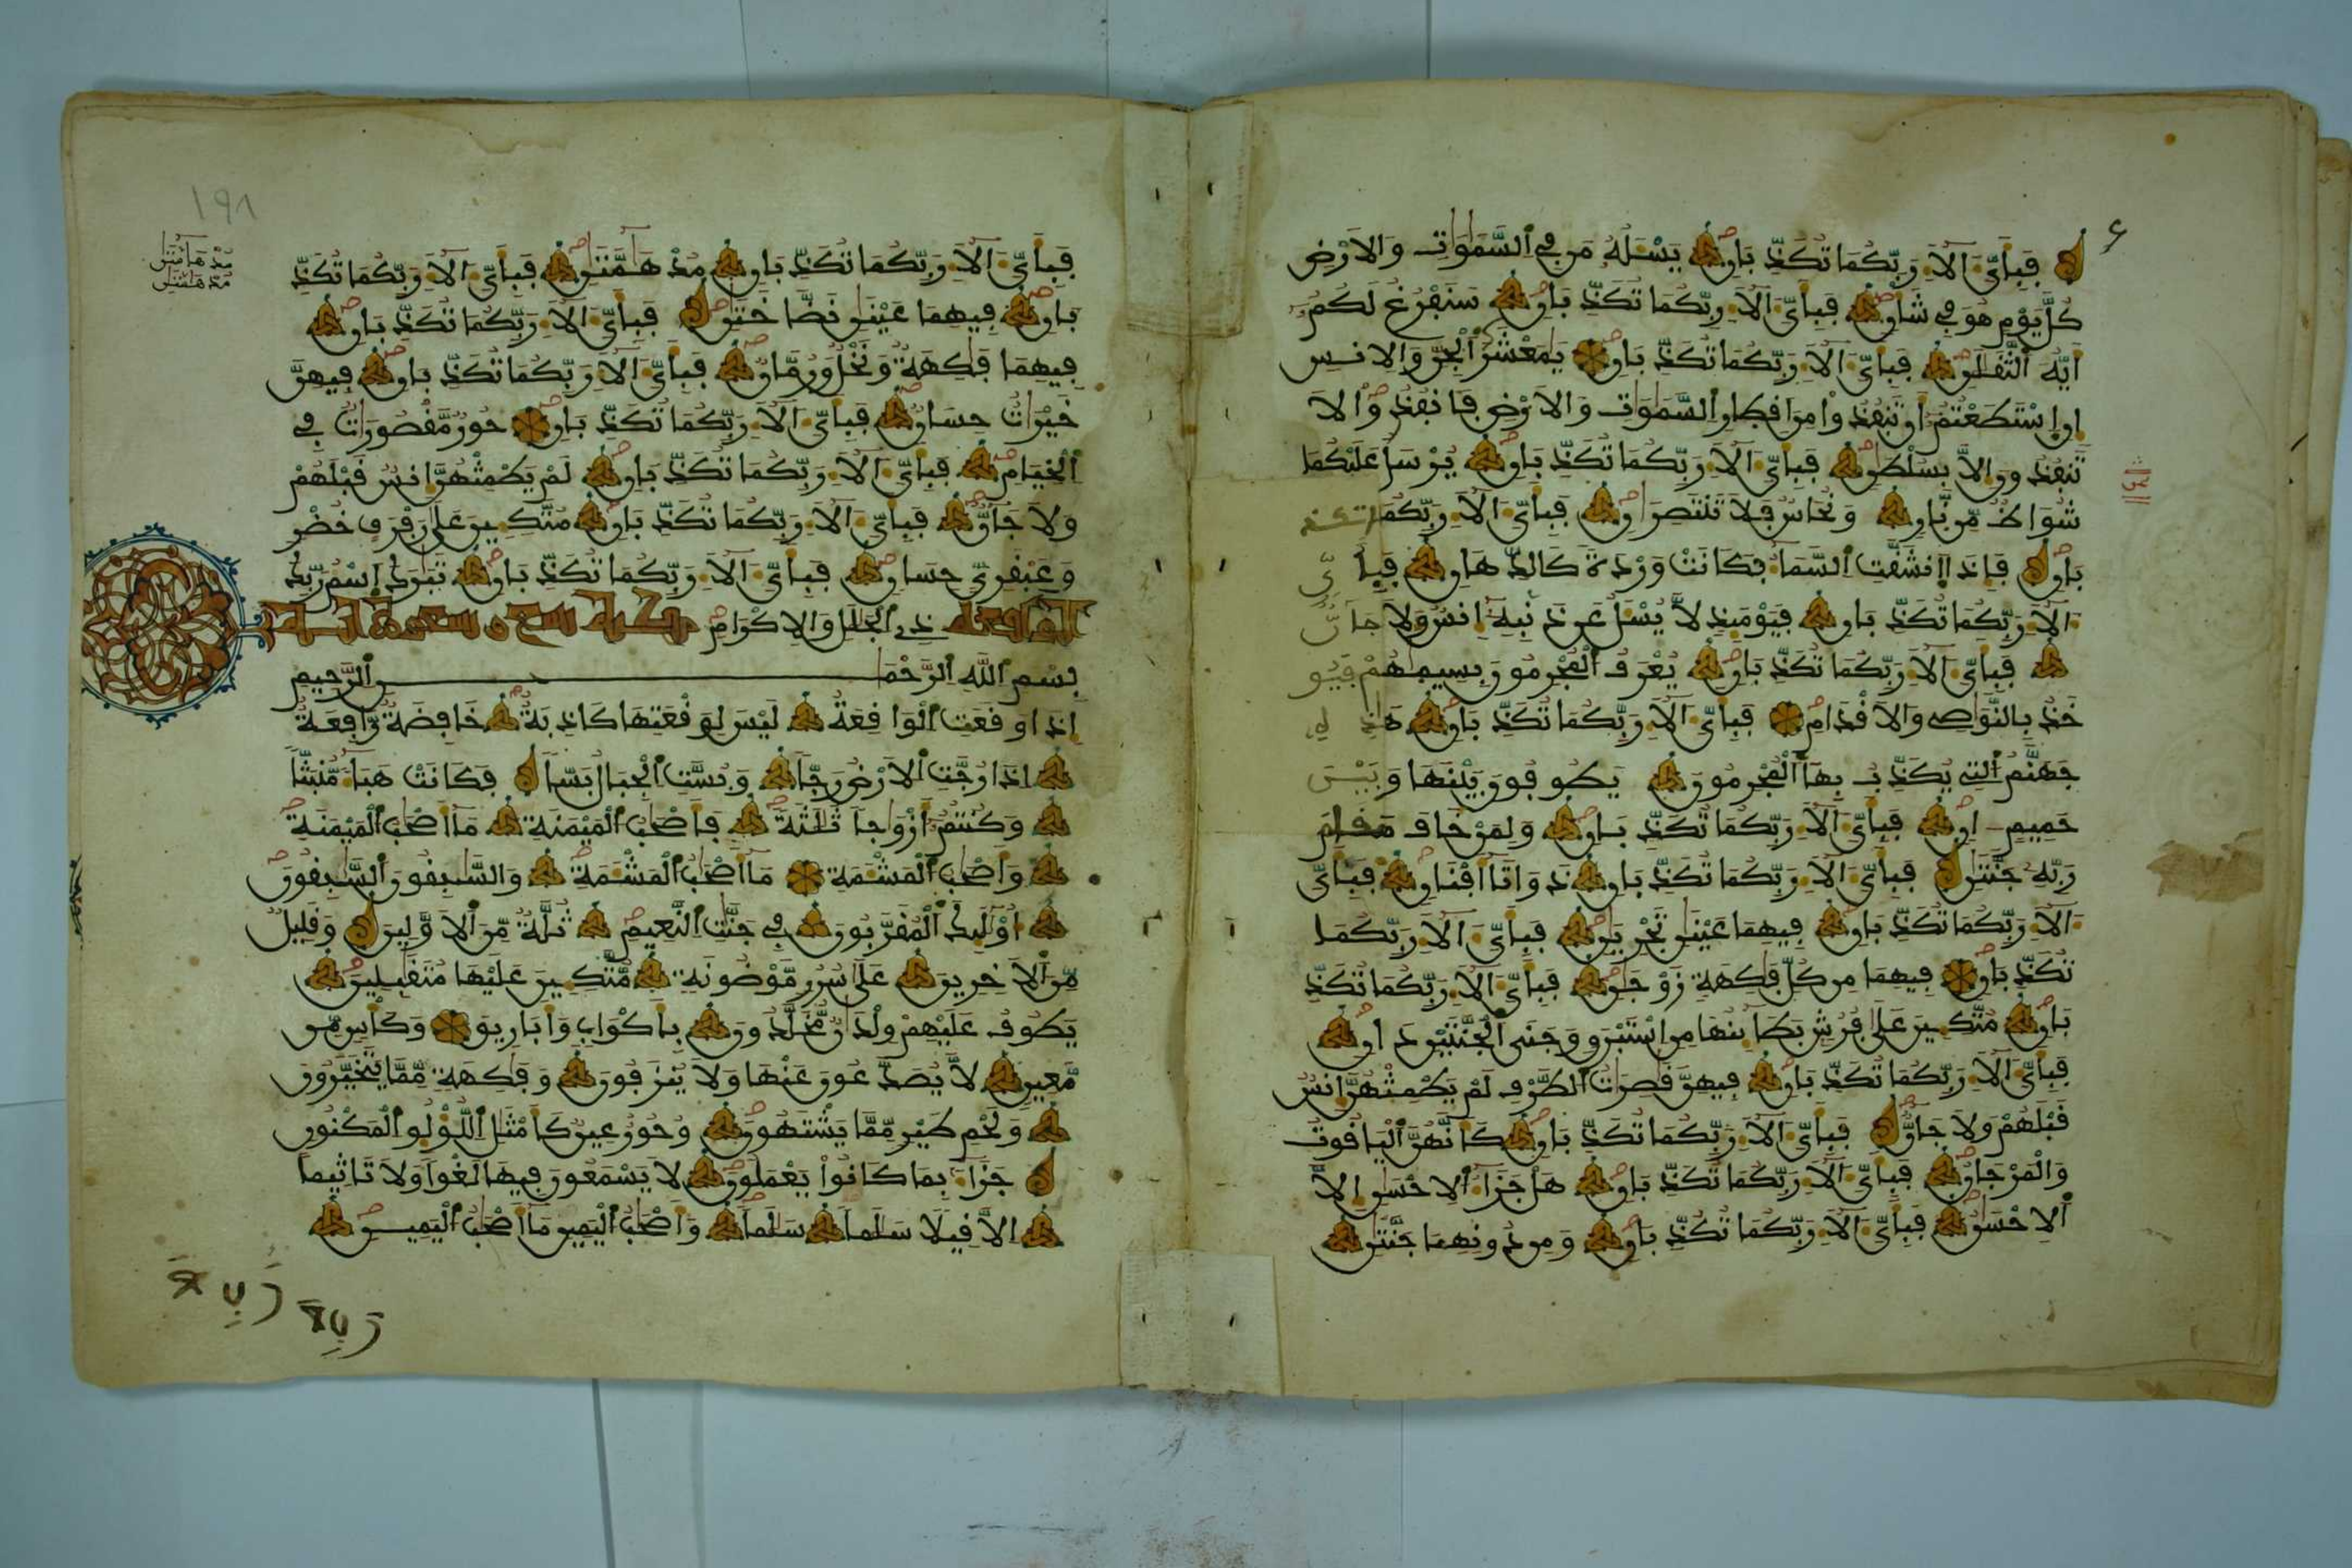 فَبِأَيِّ ءَالَآءِ رَبِّكُمَا تُكَذِّبَانِ يَسْـَٔلُهُۥ مَن فِے اِ۬لسَّمَٰوَٰتِ وَالَارْضِ
كُلَّ يَوْمٍ هُوَ فِے شَأْنٍ فَبِأَيِّ ءَالَآءِ رَبِّكُمَا تُكَذِّبَانِ سَنَفْرُغُ لَكُمُۥٓ
أَيُّهَ اَ۬لثَّقَلَٰنِ فَبِأَيِّ ءَالَآءِ رَبِّكُمَا تُكَذِّبَانِ يَٰمَعْشَرَ اَ۬لْجِنِّ وَالِانسِ
إِنِ اِ۪سْتَطَعْتُمُۥٓ أَن تَنفُذُواْ مِنَ اَقْطِارِ اِ۬لسَّمَٰوَٰتِ وَالَارْضِ فَانفُذُواْ لَا
تَنفُذُونَ إِلَّا بِسُلْطَٰنٍ فَبِأَيِّ ءَالَآءِ رَبِّكُمَا تُكَذِّبَانِ يُرْسَلُ عَلَيْكُمَا
شُوَاظٌ مِّن نّ۪ارٍ وَنُحَاسٌ فَلَا تَنتَصِرَٰنِ فَبِأَيِّ ءَالَآءِ رَبِّكُمَا تُكَذِّ
بَانِ فَإِذَا اَ۪نشَقَّتِ اِ۬لسَّمَآءُ فَكَانَتْ وَرْدَةٗ كَالدِّهَانِ فَبِأَيِّ
ءَالَآءِ رَبِّكُمَا تُكَذِّبَانِ فَيَوْمَئِذٖ لَّا يُسْـَٔلُ عَن ذَنۢبِهِۦٓ إِنسٌ وَلَا جَآنٌّ
فَبِأَيِّ ءَالَآءِ رَبِّكُمَا تُكَذِّبَانِ يُعْرَفُ اُ۬لْمُجْرِمُونَ بِسِيمَٰهُمْ فَيُو
خَذُ بِالنَّوَٰصِے وَالَاقْدَامِ فَبِأَيِّ ءَالَآءِ رَبِّكُمَا تُكَذِّبَانِ هَٰذِهِۦ
جَهَنَّمُ اُ۬لتِے يُكَذِّبُ بِهَا اَ۬لْمُجْرِمُونَ يَطُوفُونَ بَيْنَهَا وَبَيْنَ
حَمِيمٍ اٰنٖ فَبِأَيِّ ءَالَآءِ رَبِّكُمَا تُكَذِّبَانِ وَلِمَنْ خَافَ مَقَامَ
رَبِّهِۦ جَنَّتَٰنِ فَبِأَيِّ ءَالَآءِ رَبِّكُمَا تُكَذِّبَانِ ذَوَاتَآ أَفْنَانٖ فَبِأَيِّ
ءَالَآءِ رَبِّكُمَا تُكَذِّبَانِ فِيهِمَا عَيْنَٰنِ تَجْرِيَٰنِ فَبِأَيِّ ءَالَآءِ رَبِّكُمَا
تُكَذِّبَانِ فِيهِمَا مِن كُلِّ فَٰكِهَةٖ زَوْجَٰنِ فَبِأَيِّ ءَالَآءِ رَبِّكُمَا تُكَذِّ
بَانِ مُتَّكِـِٕينَ عَلَىٰ فُرُشِۢ بَطَآئِنُهَا مِنِ اِسْتَبْرَقٖ وَجَنَى اَ۬لْجَنَّتَيْنِ دَانٖ
فَبِأَيِّ ءَالَآءِ رَبِّكُمَا تُكَذِّبَانِ فِيهِنَّ قَٰصِرَٰتُ اُ۬لطَّرْفِ لَمْ يَطْمِثْهُنَّ إِنسٌ
قَبْلَهُمْ وَلَا جَآنٌّ فَبِأَيِّ ءَالَآءِ رَبِّكُمَا تُكَذِّبَانِ كَأَنَّهُنَّ اَ۬لْيَاقُوتُ
وَالْمَرْجَانُ فَبِأَيِّ ءَالَآءِ رَبِّكُمَا تُكَذِّبَانِ هَلْ جَزَآءُ اُ۬لِاحْسَٰنِ إِلَّا
اَ۬لِاحْسَٰنُ فَبِأَيِّ ءَالَآءِ رَبِّكُمَا تُكَذِّبَانِ وَمِن دُونِهِمَا جَنَّتَٰنِ
١٩٨
مُدْهَآمَّتَٰنِ
فَبِأَيِّ ءَالَآءِ رَبِّكُمَا تُكَذِّبَانِ مُدْهَآمَّتَٰنِ فَبِأَيِّ ءَالَآءِ رَبِّكُمَا تُكَذِّ
بَانِ فِيهِمَا عَيْنَٰنِ نَضَّاخَتَٰنِ فَبِأَيِّ ءَالَآءِ رَبِّكُمَا تُكَذِّبَانِ
فِيهِمَا فَٰكِهَةٌ وَنَخْلٌ وَرُمَّانٌ فَبِأَيِّ ءَالَآءِ رَبِّكُمَا تُكَذِّبَانِ فِيهِنَّ
خَيْرَٰتٌ حِسَانٌ فَبِأَيِّ ءَالَآءِ رَبِّكُمَا تُكَذِّبَانِ حُورٌ مَّقْصُورَٰتٌ فِے
اِ۬لْخِيَامِ فَبِأَيِّ ءَالَآءِ رَبِّكُمَا تُكَذِّبَانِ لَمْ يَطْمِثْهُنَّ إِنسٌ قَبْلَهُمْ
وَلَا جَآنٌّ فَبِأَيِّ ءَالَآءِ رَبِّكُمَا تُكَذِّبَانِ مُتَّكِـِٕينَ عَلَىٰ رَفْرَفٍ خُضْرٖ
وَعَبْقَرِيٍّ حِسَانٖ فَبِأَيِّ ءَالَآءِ رَبِّكُمَا تُكَذِّبَانِ تَبَٰرَكَ اَ۪سْمُ رَبِّكَ
ذِے اِ۬لْجَلَٰلِ وَالِاكْرَامِ الواقعة مكية تسع وتسعون آية
بِسْمِ اِ۬للَّهِ اِ۬لرَّحْمَٰنِ اِ۬لرَّحِيمِ
إِذَا وَقَعَتِ اِ۬لْوَاقِعَةُ لَيْسَ لِوَقْعَتِهَا كَاذِبَةٌ خَافِضَةٞ رَّافِعَةٌ
إِذَا رُجَّتِ اِ۬لَارْضُ رَجّاٗ وَبُسَّتِ اِ۬لْجِبَالُ بَسّاٗ فَكَانَتْ هَبَآءٗ مُّنۢبَثّاٗ
وَكُنتُمُۥٓ أَزْوَٰجاٗ ثَلَٰثَةٗ فَأَصْحَٰبُ اُ۬لْمَيْمَنَةِ مَآ أَصْحَٰبُ اُ۬لْمَيْمَنَةِ
وَأَصْحَٰبُ اُ۬لْمَشْـَٔمَةِ مَآ أَصْحَٰبُ اُ۬لْمَشْـَٔمَةِ وَالسَّٰبِقُونَ اَ۬لسَّٰبِقُونَ
أُوْلَٰٓئِكَ اَ۬لْمُقَرَّبُونَ فِے جَنَّٰتِ اِ۬لنَّعِيمِ ثُلَّةٞ مِّنَ اَ۬لَاوَّلِينَ وَقَلِيلٞ
مِّنَ اَ۬لَاخِرِينَ عَلَىٰ سُرُرٖ مَّوْضُونَةٖ مُّتَّكِـِٕينَ عَلَيْهَا مُتَقَٰبِلِينَ
يَطُوفُ عَلَيْهِمْ وِلْدَٰنٞ مُّخَلَّدُونَ بِأَكْوَابٖ وَأَبَارِيقَ وَكَأْسٖ مِّن
مَّعِينٖ لَّا يُصَدَّعُونَ عَنْهَا وَلَا يُنزَفُونَ وَفَٰكِهَةٖ مِّمَّا يَتَخَيَّرُونَ
وَلَحْمِ طَيْرٖ مِّمَّا يَشْتَهُونَ وَحُورٌ عِينٞ كَأَمْثَٰلِ اِ۬للُّؤْلُوِٕ اِ۬لْمَكْنُونِ
جَزَآءَۢ بِمَا كَانُواْ يَعْمَلُونَ لَا يَسْمَعُونَ فِيهَا لَغْواٗ وَلَا تَاثِيماً
إِلَّا قِيلاٗ سَلَٰماٗ سَلَٰماٗ وَأَصْحَٰبُ اُ۬لْيَمِينِ مَآ أَصْحَٰبُ اُ۬لْيَمِينِ